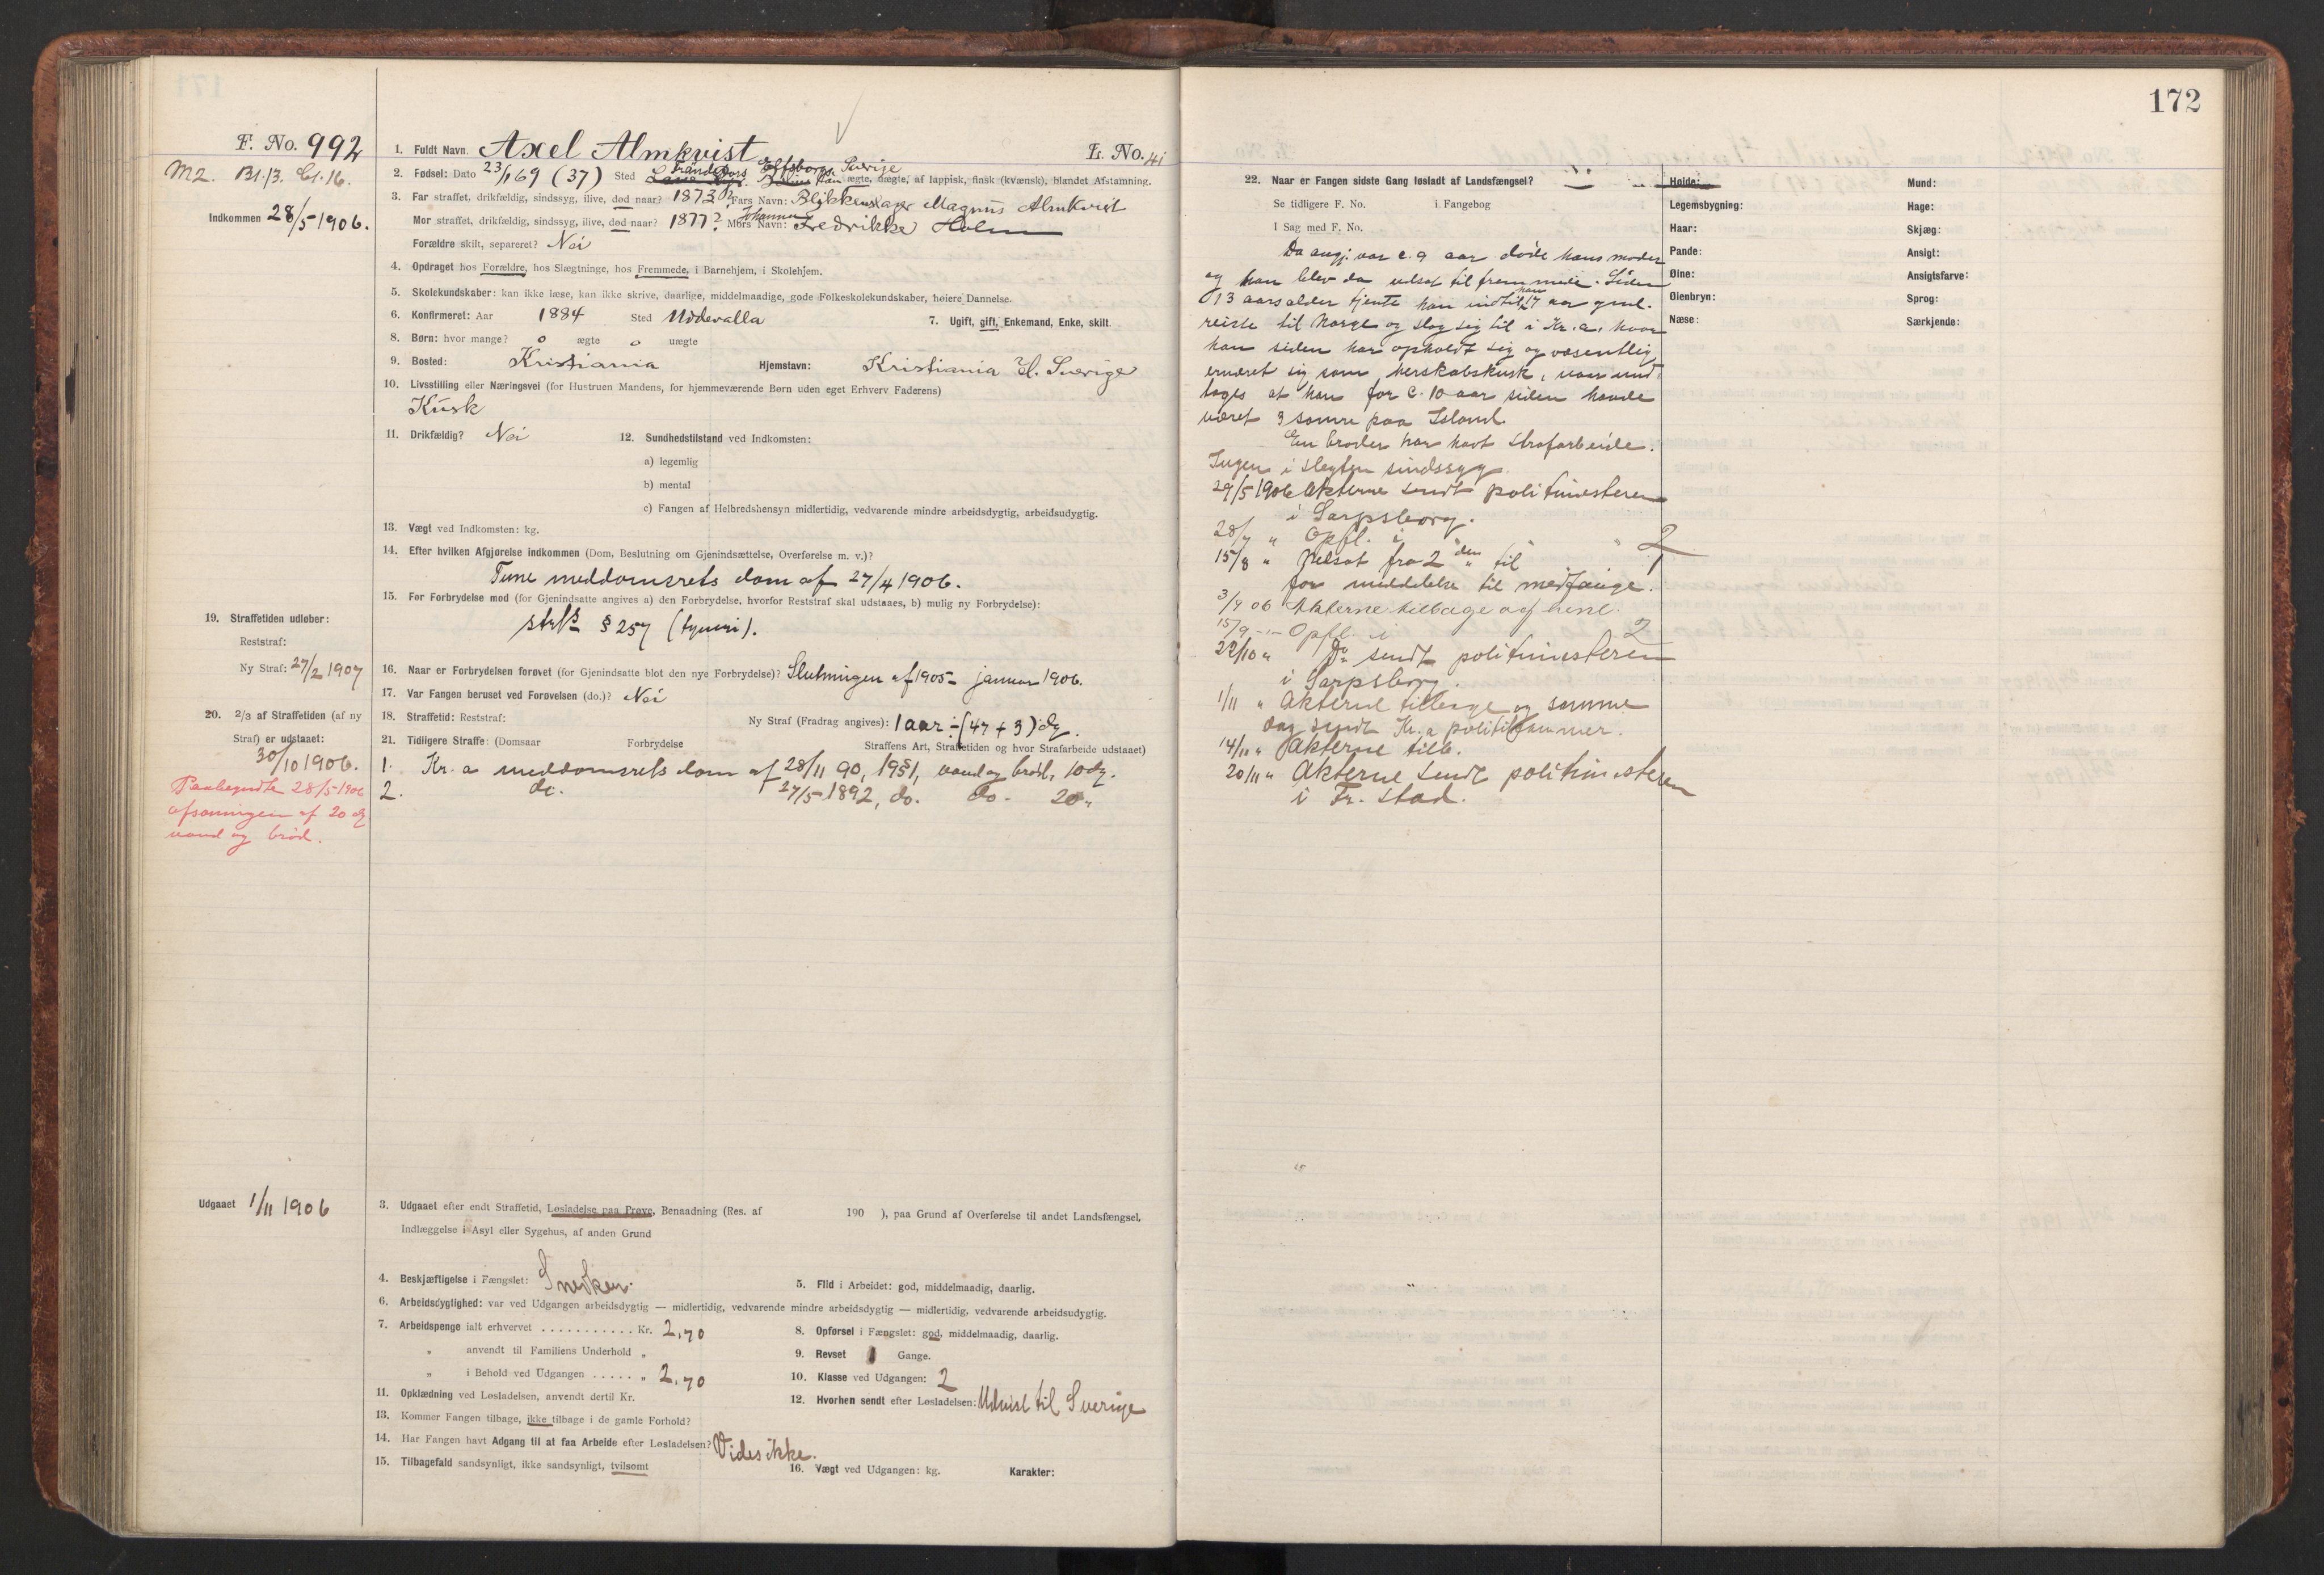 172
F. No. 992
M2. Bl. 13. Cl. 16.
Indkommen 28/5 1906.
1. Fuldt Navn. Axel Almkvist L. No. 41
2. Fødsel: Dato 23/1 69 (37) Sted Trändefors Elfsborgs Sverige län ægte, uægte, af lappisk, finsk (kvænsk), blandet Afstamning.
3. Far straffet, drikfældig, sindssyg, ilive, død naar? 1873? Fars Navn: Blikkenslager Magnus Almkvist
Mor straffet, drikfældig, sindssyg, ilive, død naar? 1877? Mors Navn: Johanna Fredrikke Holm
Forældre skilt, separeret? Nei
4. Opdraget hos Forældre, hos Slægtninge, hos Fremmede, i Barnehjem, i Skolehjem.
5. Skolekundskaber: kan ikke læse, kan ikke skrive, daarlige, middelmaadige, gode Folkeskolekundskaber, høiere Dannelse.
6. Konfirmeret: Aar 1884 Sted Uddevalla 7. Ugift, gift, Enkemand, Enke, skilt.
8. Børn: hvor mange? 0 ægte 0 uægte
9. Bosted: Kristiania Hjemstavn: Kristiania Sverige
10. Livsstilling eller Næringsvei (for Hustruen Mandens, for hjemmeværende Børn uden eget Erhverv Faderens)
Kusk
11. Drikfældig? Nei 12. Sundhedstilstand ved Indkomsten:
a) legemlig
b) mental
c) Fangen af Helbredshensyn midlertidig, vedvarende mindre arbeidsdygtig, arbeidsudygtig.
13. Vægt ved Indkomsten: kg.
14. Efter hvilken Afgjørelse indkommen (Dom, Beslutning om Gjenindsættelse, Overførelse m. v.)?
Tune meddomsrets dom af 27/4 1906.
15. For Forbrydelse mod (for Gjenindsatte angives a) den Forbrydelse, hvorfor Reststraf skal udstaaes, b) mulig ny Forbrydelse):
§ 257 (tyveri).
19. Straffetiden udløber:
Reststraf:
Ny Straf: 27/2 1907
16. Naar er Forbrydelsen forøvet (for Gjenindsatte blot den nye Forbrydelse)? Slutningen af 1905 – januar 1906.
17. Var Fangen beruset ved Forøvelsen (do.)? Nei
20. 2/3 af Straffetiden (af ny
Straf) er udstaaet:
30/10 1906.
Paabegyndte 28/5 1906
afsoningen af 20 dg
vand og brød.
18. Straffetid: Reststraf: Ny Straf (Fradrag angives): 1 aar ÷ (47 + 3) dg.
21. Tidligere Straffe: (Domsaar Forbrydelse Straffens Art, Straffetiden og hvor Strafarbeide udstaaet)
1. Kr.a meddomsrets dom af 28/11 90, 19§1, vand og brød, 10 dg.
2. do. 27/5 1892, do. do. 20 "
Udgaaet 1/11 1906
3. Udgaaet efter endt Straffetid, Løsladelse paa Prøve, Benaadning (Res. af 190 ), paa Grund af Overførelse til andet Landsfængsel,
Indlæggelse i Asyl eller Sygehus, af anden Grund
4. Beskjæftigelse i Fængslet: Snedker. 5. Flid i Arbeidet: god, middelmaadig, daarlig.
6. Arbeidsdygtighed: var ved Udgangen arbeidsdygtig — midlertidig, vedvarende mindre arbeidsdygtig — midlertidig, vedvarende arbeidsudygtig.
7. Arbeidspenge ialt erhvervet ........... Kr. 2,70 8. Opførsel i Fængslet: god, middelmaadig, daarlig.
" anvendt til Familiens Underhold " 9. Revset 1 Gange.
" i Behold ved Udgangen ..... " 2,70 10. Klasse ved Udgangen: 2
11. Opklædning ved Løsladelsen, anvendt dertil Kr. 12. Hvorhen sendt efter Løsladelsen: Udvist til Sverige
13. Kommer Fangen tilbage, ikke tilbage i de gamle Forhold?
14. Har Fangen havt Adgang til at faa Arbeide efter Løsladelsen? Vides ikke.
15. Tilbagefald sandsynligt, ikke sandsynligt, tvilsomt 16. Vægt ved Udgangen: kg. Karakter:
22. Naar er Fangen sidste Gang løsladt af Landsfængsel?
Se tidligere F. No. i Fangebog
I Sag med F. No.
Da angj. var c. 9 aar døde hans moder
og han blev da udsat til fremmede. Siden
13 aarsalder tjente han indtil han 17 aar gml.
reiste til Norge og slog sig til i Kr.a, hvor
han siden har opholdt sig og væsentlig
ernæret sig som herskabskusk, naar und-
tages at han for c. 10 aar siden havde
været 3 somre paa Island.
En broder har havt strafarbeide.
Ingen i slegten sindssyg.
29/5 1906 Akterne sendt politimesteren
i Sarpsborg.
28/7 " Opfl. i " 2
15/8 " Nedsat fra 2den til " 1
for meddelelse til medfange.
3/9 06 Akterne tilbage og henl.
15/9 -"- Opfl. i 2
22/10 " Do sendt politimesteren
i Sarpsborg.
1/11 " Akterne tilbage og samme
dag sendt Kr.a politikammer.
14/11 " Akterne tilb.
20/11 " Akterne sendt politimesteren
i Fr.stad.
Høide: Mund:
Legemsbygning: Hage:
Haar: Skjæg:
Pande: Ansigt:
Øine: Ansigtsfarve:
Øienbryn: Sprog:
Næse: Særkjende: